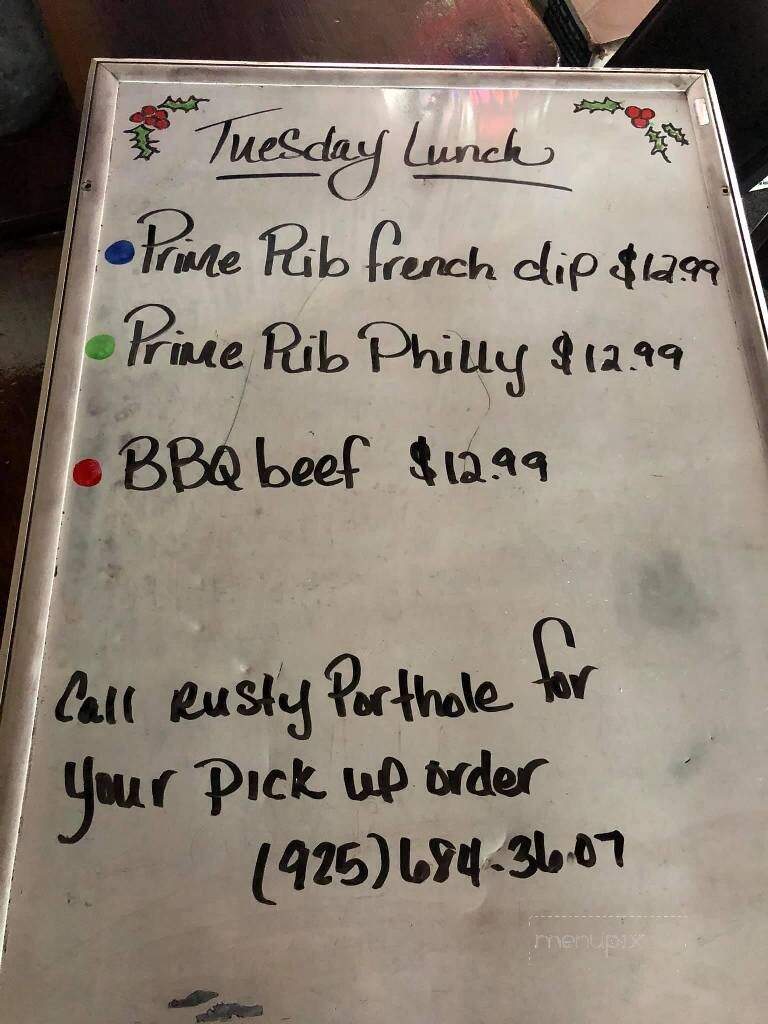 Tuesday Lunch
Prime Rib french dip $12.99
Prime Rib Philly $12.99
BBQ beef $12.99
Call Rusty Porthole for
your Pick up order
(925)684-3607
menupix